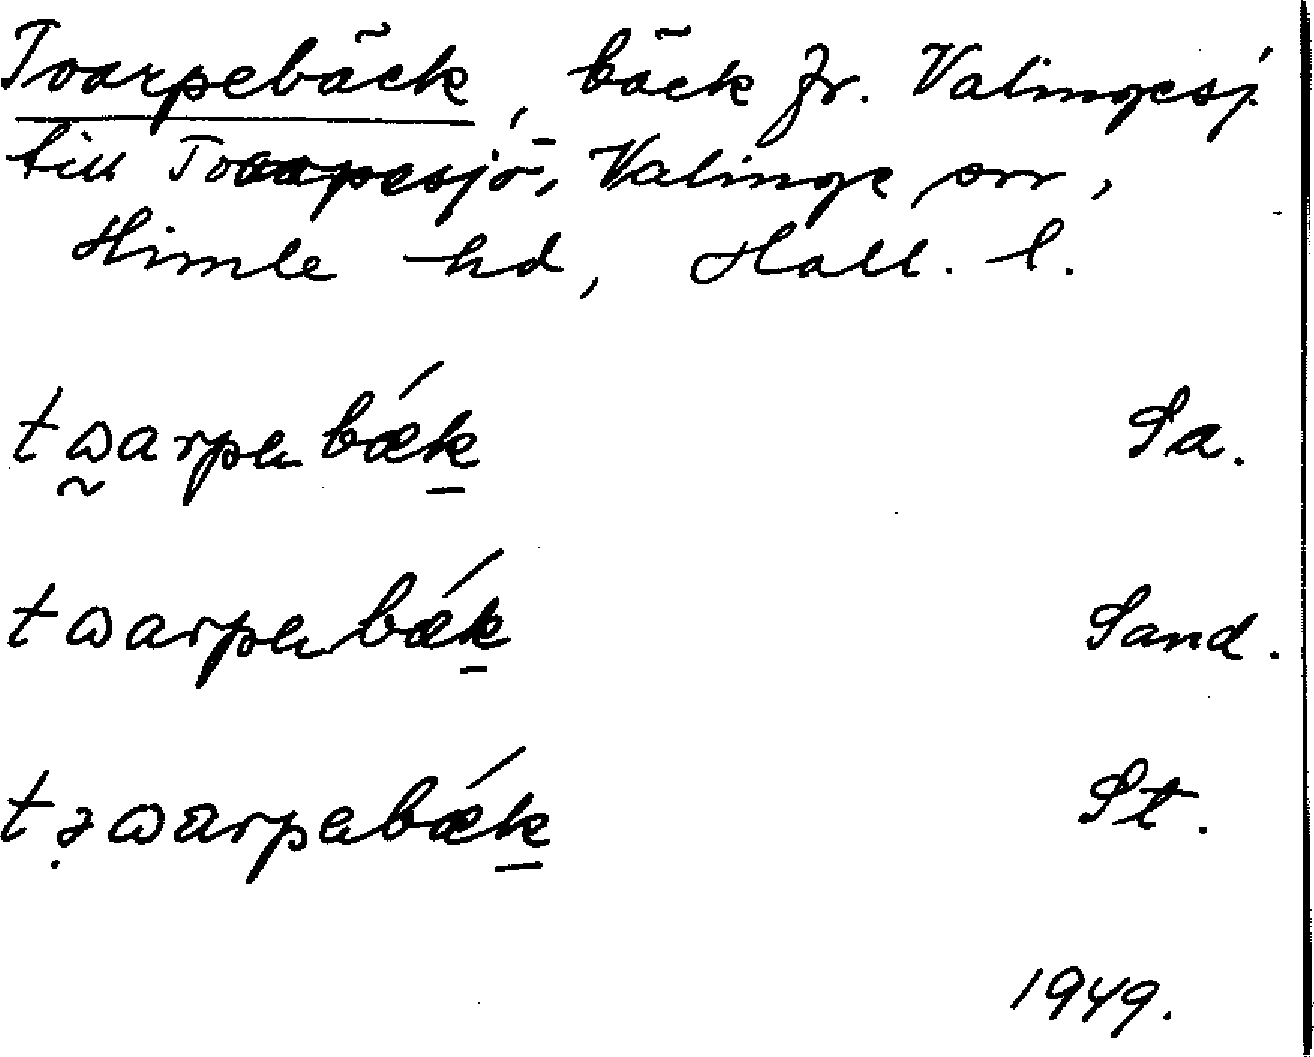 Toarpebäck, bäck fr. Valingesj
till Toarpesjö, Valinge sn,
Himle hd, Hall. l.
twarpabæk Sa.
twarpabæk Sand.
təwarpabæk St.
1949.